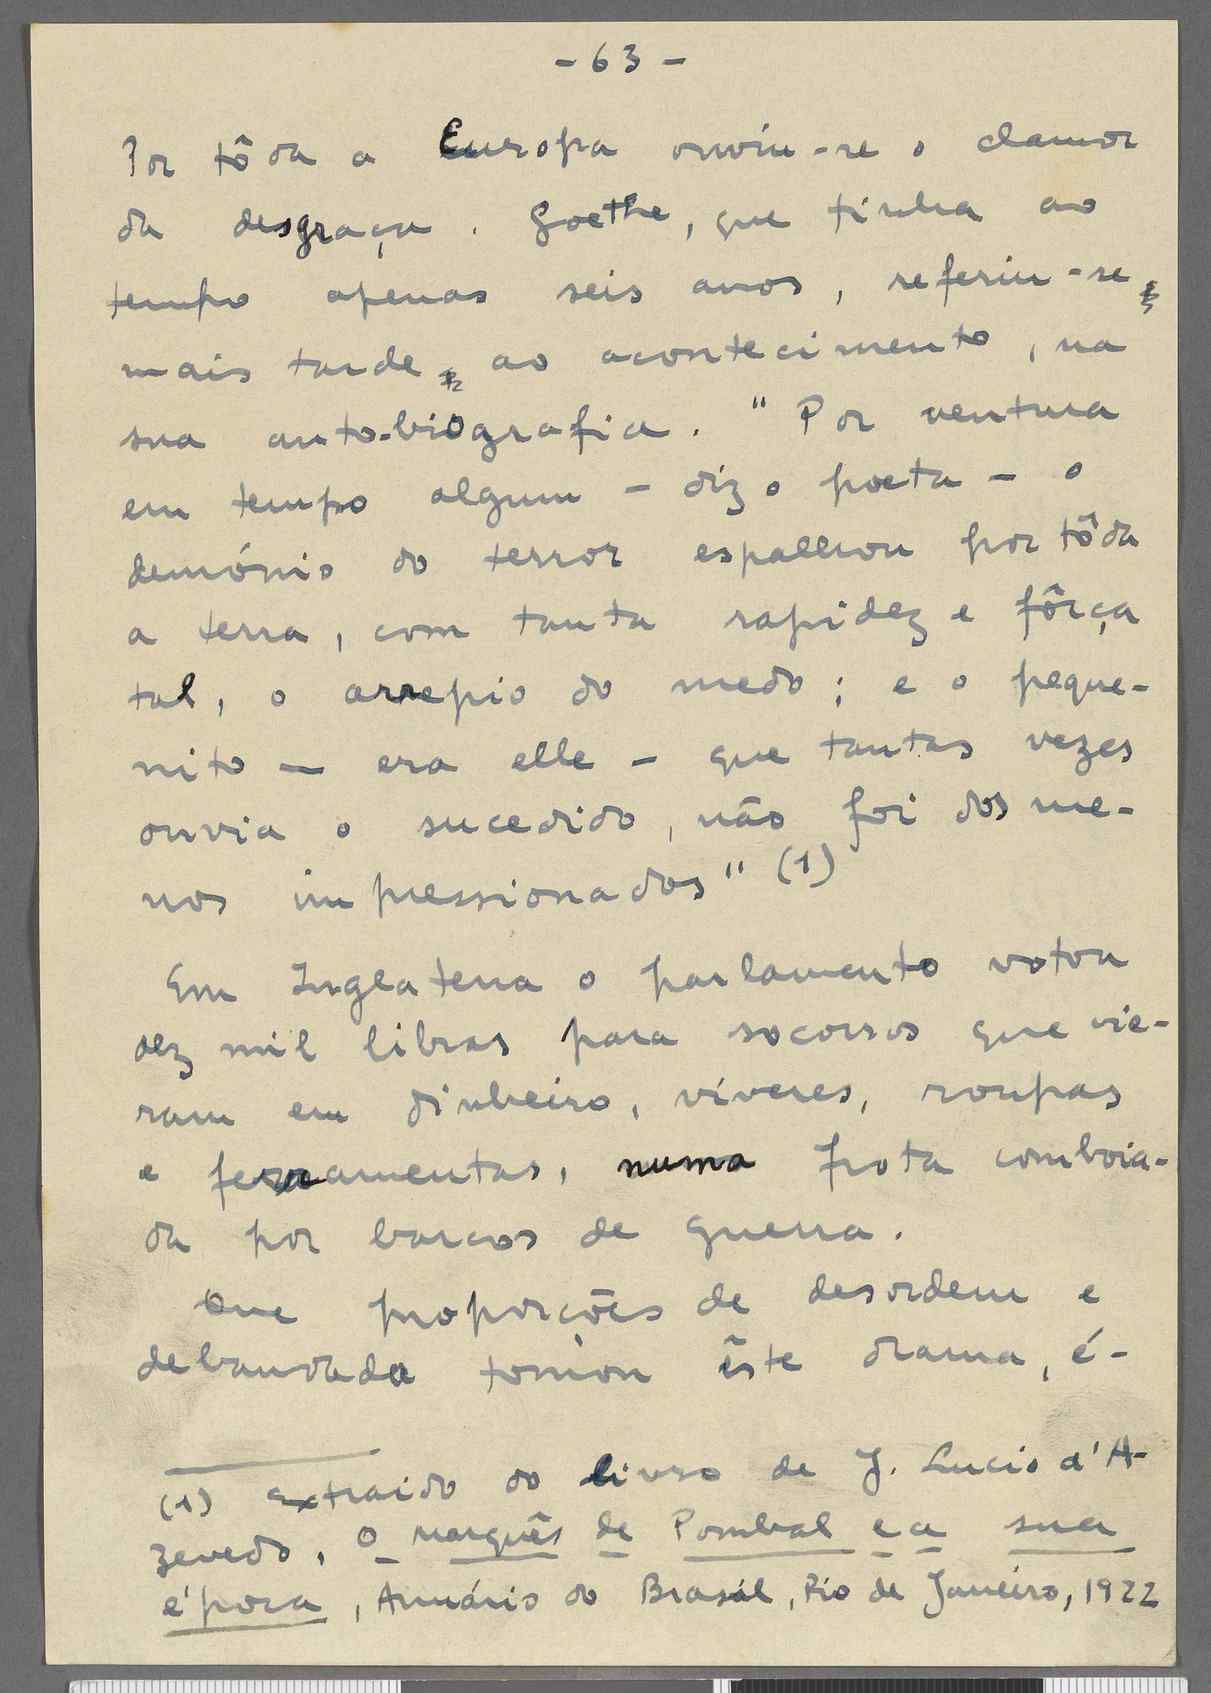 - 63 -
Por tôda a Europa ouviu-se o clamor
da desgraça. Goethe, que tinha ao
tempo apenas seis anos, referiu-se
mais tarde ao acontecimento, na
sua auto-biografia. "Por ventura
em tempo algum - diz o poeta - o
demónio do terror espalhou por tôda
a terra, com tanta rapidez e fôrça
tal, o arrepio do medo; e o peque-
nito — era elle - que tantas vezes
ouvia o sucedido, não foi dos me-
nos impressionados" (1)
Em Inglaterra o parlamento votou
dez mil libras para socorros que vie-
ram em dinheiro, víveres, roupas
e ferramentas, numa frota comboia-
da por barcos de guerra.
Que proporções de desordem e
debandada tomou êste drama, é-
(1) Extraido do livro de J. Lucio d'A-
zevedo, O marquês de Pombal e a sua
época, Annuário do Brasil, Rio de Janeiro, 1922